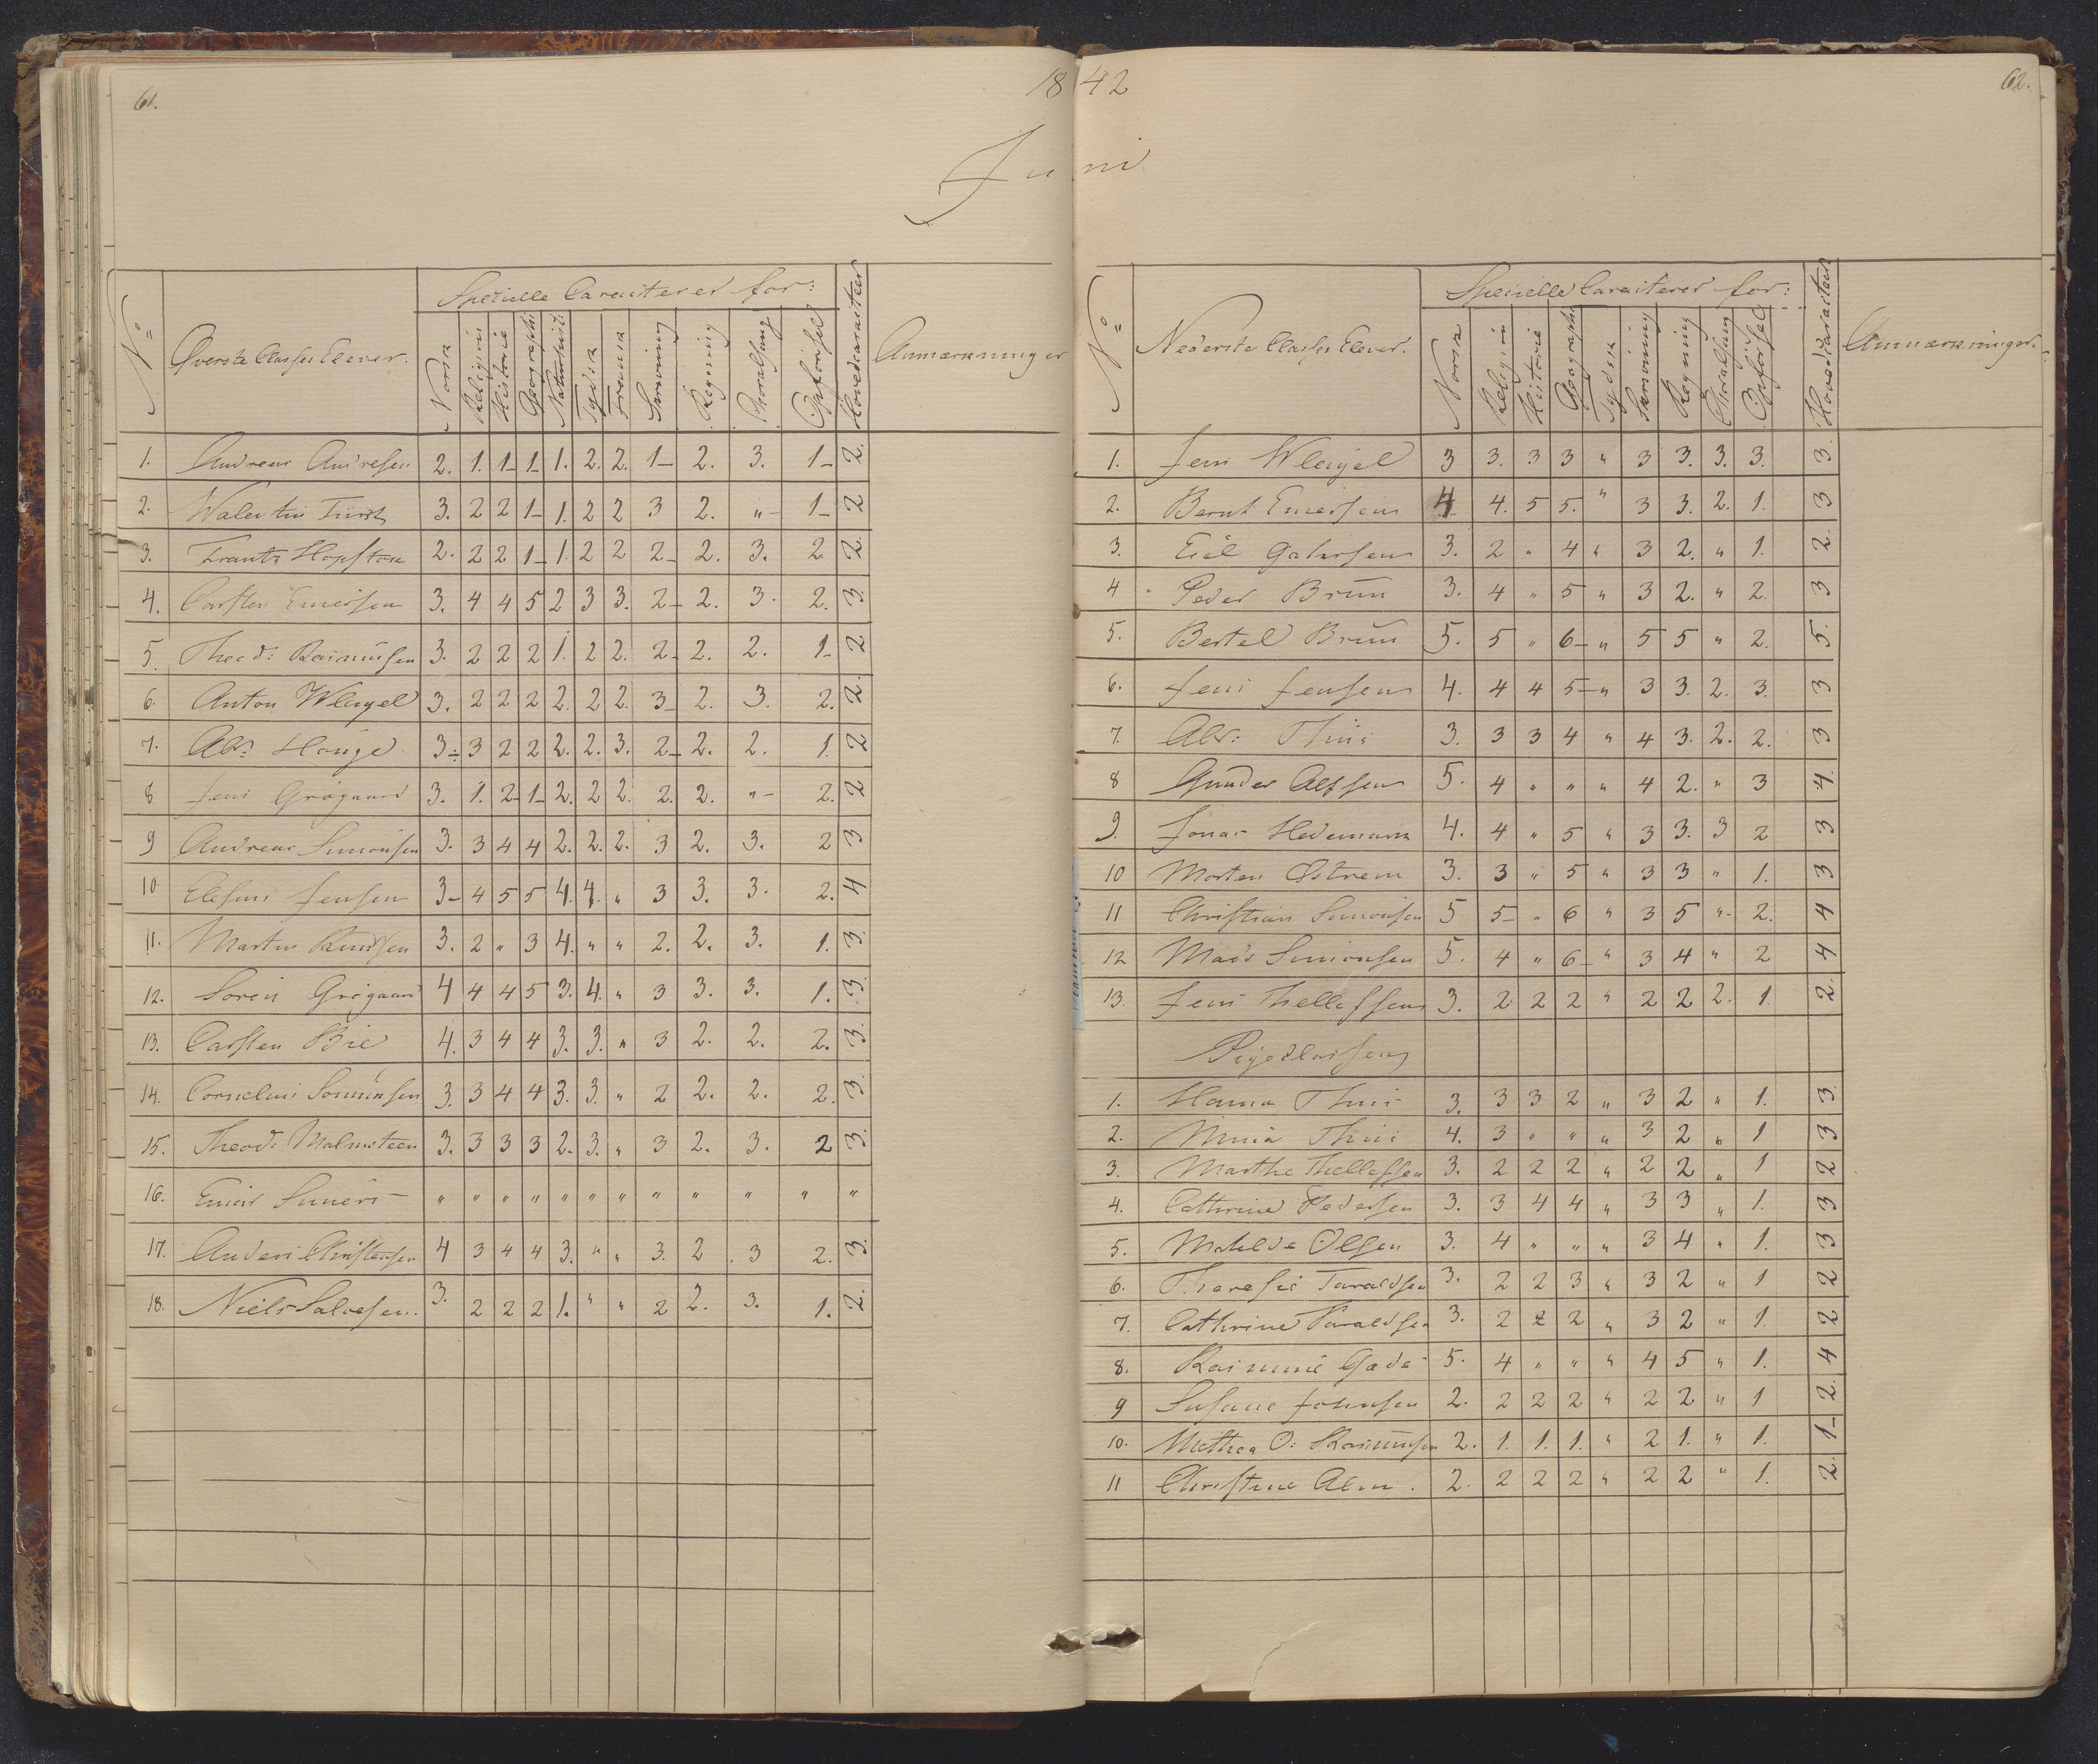 61.
18 42
62.
Juni
No
Øverste Classes Elever.
Specielle Caracterer for:
Norsk
Religion
Historie
Geographi
Naturhist:
Tydsk
Fransk
Skrivning
Regning
Choralsang
Opførsel
Hovedcaracteer
Anmærkninger
1. Andreas Andresen 2. 1. 1- 1- 1. 2. 2. 1- 2. 3. 1- 2.
2. Walentin Fürst 3. 2 2 1- 1. 2 2 3 2. " - 1- 2
3. Frantz Hopstock 2. 2 2 1- 1. 2 2 2- 2. 3. 2 2.
4. Carsten Ericksen 3. 4 4 5 2 3 3. 2- 2. 3. 2. 3.
5. Theod: Rasmussen 3. 2 2 2 1. 2 2. 2- 2. 2. 1- 2
6. Anton Wleugel 3. 2 2 2 2. 2 2. 3- 2. 3. 2. 2.
7. Alb: Houge 3÷ 3 2 2 2. 2. 3. 2- 2. 2. 1. 2
8 Jens Grögaard 3. 1. 2- 1- 2. 2 2. 2. 2. " - 2. 2
9 Andreas Simonsen 3. 3 4 4 2. 2. 2. 3 2. 3. 2 3
10 Jensen 3- 4 5 5 4. 4. " 3 3. 3. 2. 4
11. Martin Knudsen 3. 2 " 3 4. " " 2. 2. 3. 1. 3.
12. Soren Grögaard 4 4 4 5 3. 4. " 3 3. 3. 1. 3.
13. Carsten Bie 4. 3 4 4 3. 3. " 3 2. 2. 2. 3.
14. Cornelius 3. 3 4 4 3. 3. " 2 2. 2. 2. 3.
15. Theod: Malmsteen 3. 3 3 3 2. 3. " 3 2. 3. 2 3.
16. " " " " " " " " " " " "
17. Anders Christensen 4 3 4 4 3. " " 3. 2 3 2. 3.
18. Niels Salvesen. 3. 2 2 2 1. " " 2 2. 3. 1. 2.
No
Nederste Classes Elever.
Specielle Caracterer for:
Norsk
Religion
Historie
Geographi
Tydsk
Skrivning
Regning
Choralsang
Opførsel
Hovedcaracteer
Anmærkninger.
1. Jens Wleugel 3 3. 3 3 " 3 3. 3. 3. 3.
2. Bernt Ericksen 4 4. 5 5. " 3 3. 2. 1. 3
3. 3. 2 " 4 " 3 2. " 1. 2.
4 Peder Bruun 3. 4 " 5 " 3 2. " 2. 3
5. Bertel Bruun 5. 5 " 6- " 5 5 " 2. 5.
6. Jens Jensen 4. 4 4 5- " 3 3. 2. 3. 3
7. Alb: Thiis 3. 3 3 4 " 4 3. 2. 2. 3
8 Gunder Alfsen 5. 4 " " " 4 2. " 3 4.
9. Jonas Hedemark 4. 4 " 5 " 3 3. 3 2 3
10 Morten Østrem 3. 3 " 5 " 3 3 " 1. 3
11 Christian Simonsen 5 5- " 6 " 3 5 " - 2. 4
12 Mads Simonsen 5. 4 " 6- " 3 4 " 2 4
13. Jens Thellefsen 3. 2 2 2 " 2 2 2. 1. 2.
Pigeclassen
1. Hanna Thiis 3. 3 3 2 " 3 2 " 1. 3.
2. Thiis 4. 3 " " " 3 2 " 1 3
3. Marthe Thellefsen 3. 2 2 2 " 2 2 " 1 2
4. Cathrine Pedersen 3. 3 4 4 " 3 3 " 1. 3
5. Matilde Olsen 3. 4 " " " 3 4 " 1. 3
6. Therese Taraldsen 3. 2 2 3 " 3 2 " 1 2
7. Cathrine Taraldsen 3. 2 2 2 " 3 2 " 1. 2
8. Gade 5. 4 " " " 4 5 " 1. 4
9 Susane Johnsen 2. 2 2 2 " 2 2 " 1 2.
10. Mathea O: Rasmussen 2. 1. 1. 1. " 2 1. " 1. 1-
11 Christine Alm. 2. 2 2 2 " 2 2 " 1. 2.